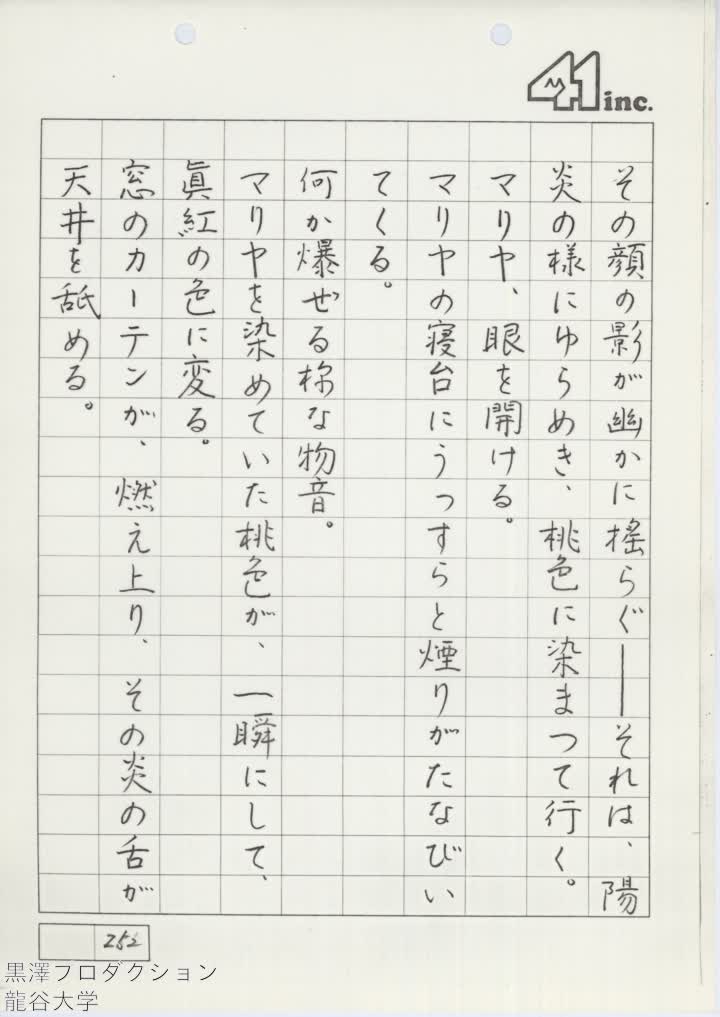 41 inc.
その顔の影が幽かに搖らぐ――それは、陽
炎の様にゆらめき、桃色に染まつて行く。
マリヤ、眼を開ける。
マリヤの寝台にうっすらと煙りがたなびい
てくる。
何か爆ぜる様な物音。
マリヤを染めていた桃色が、一瞬にして、
眞紅の色に変る。
窓のカーテンが、燃え上り、その炎の舌が
天井を舐める。
252
黒澤プロダクション
龍谷大学